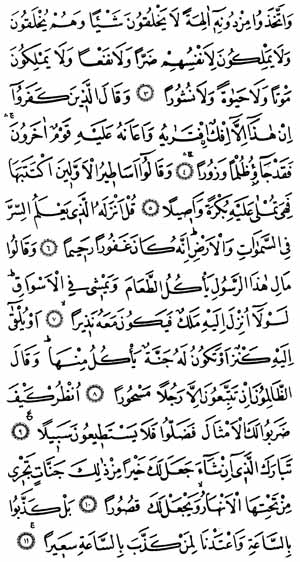 وَاتَّخَذُوا مِنْ دُونِهِ اٰلِهَةً لَا يَخْلُقُونَ شَيْـًٔا وَهُمْ يُخْلَقُونَ
وَلَا يَمْلِكُونَ لِاَنْفُسِهِمْ ضَرًّا وَلَا نَفْعًا وَلَا يَمْلِكُونَ
مَوْتًا وَلَا حَيٰوةً وَلَا نُشُورًا ﴿٣﴾ وَقَالَ الَّذِينَ كَفَرُوا
اِنْ هٰذَا اِلَّا اِفْكٌ افْتَرٰيهُ وَاَعَانَهُ عَلَيْهِ قَوْمٌ اٰخَرُونَ
فَقَدْ جَاؤُ ظُلْمًا وَزُورًا ﴿٤﴾ وَقَالُوا اَسَاطِيرُ الْاَوَّلِينَ اكْتَتَبَهَا
فَهِيَ تُمْلٰى عَلَيْهِ بُكْرَةً وَاَصِيلًا ﴿٥﴾ قُلْ اَنْزَلَهُ الَّذِي يَعْلَمُ السِّرَّ
فِي السَّمٰوَاتِ وَالْاَرْضِ اِنَّهُ كَانَ غَفُورًا رَحِيمًا ﴿٦﴾ وَقَالُوا
مَالِ هٰذَا الرَّسُولِ يَأْكُلُ الطَّعَامَ وَيَمْشِي فِي الْاَسْوَاقِ
لَوْلَا اُنْزِلَ اِلَيْهِ مَلَكٌ فَيَكُونَ مَعَهُ نَذِيرًا ﴿٧﴾ اَوْ يُلْقٰى
اِلَيْهِ كَنْزٌ اَوْ تَكُونُ لَهُ جَنَّةٌ يَأْكُلُ مِنْهَا وَقَالَ
الظَّالِمُونَ اِنْ تَتَّبِعُونَ اِلَّا رَجُلًا مَسْحُورًا ﴿٨﴾ اُنْظُرْ كَيْفَ
ضَرَبُوا لَكَ الْاَمْثَالَ فَضَلُّوا فَلَا يَسْتَطِيعُونَ سَبِيلًا ﴿٩﴾
تَبَارَكَ الَّذِي اِنْ شَاءَ جَعَلَ لَكَ خَيْرًا مِنْ ذٰلِكَ جَنَّاتٍ تَجْرِي
مِنْ تَحْتِهَا الْاَنْهَارُ وَيَجْعَلْ لَكَ قُصُورًا ﴿١٠﴾ بَلْ كَذَّبُوا
بِالسَّاعَةِ وَاَعْتَدْنَا لِمَنْ كَذَّبَ بِالسَّاعَةِ سَعِيرًا ﴿١١﴾